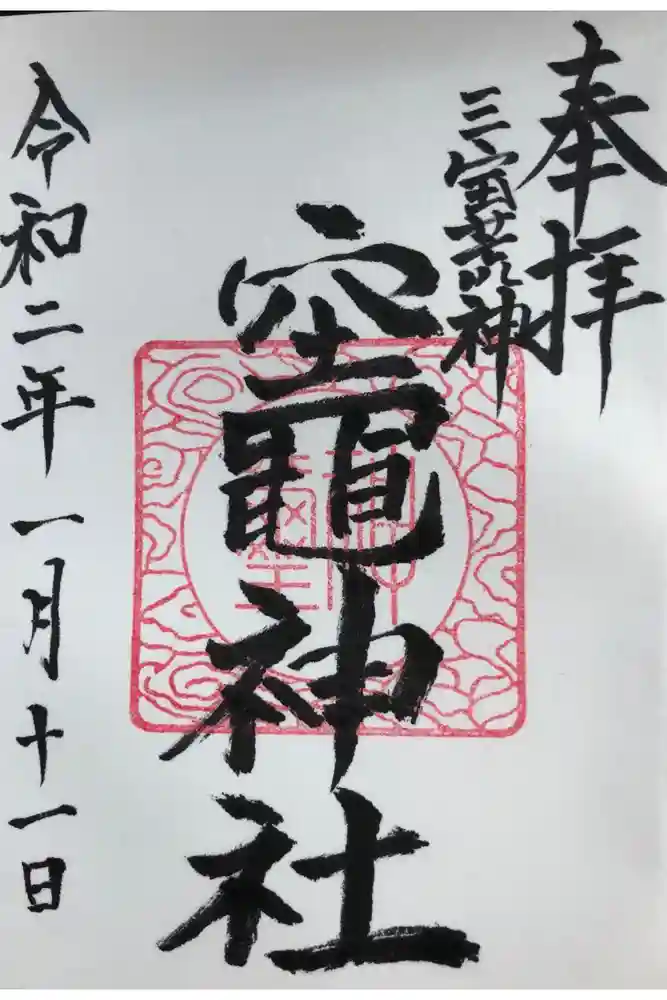 奉拝
三宝荒神
竈神社
令和二年一月十一日